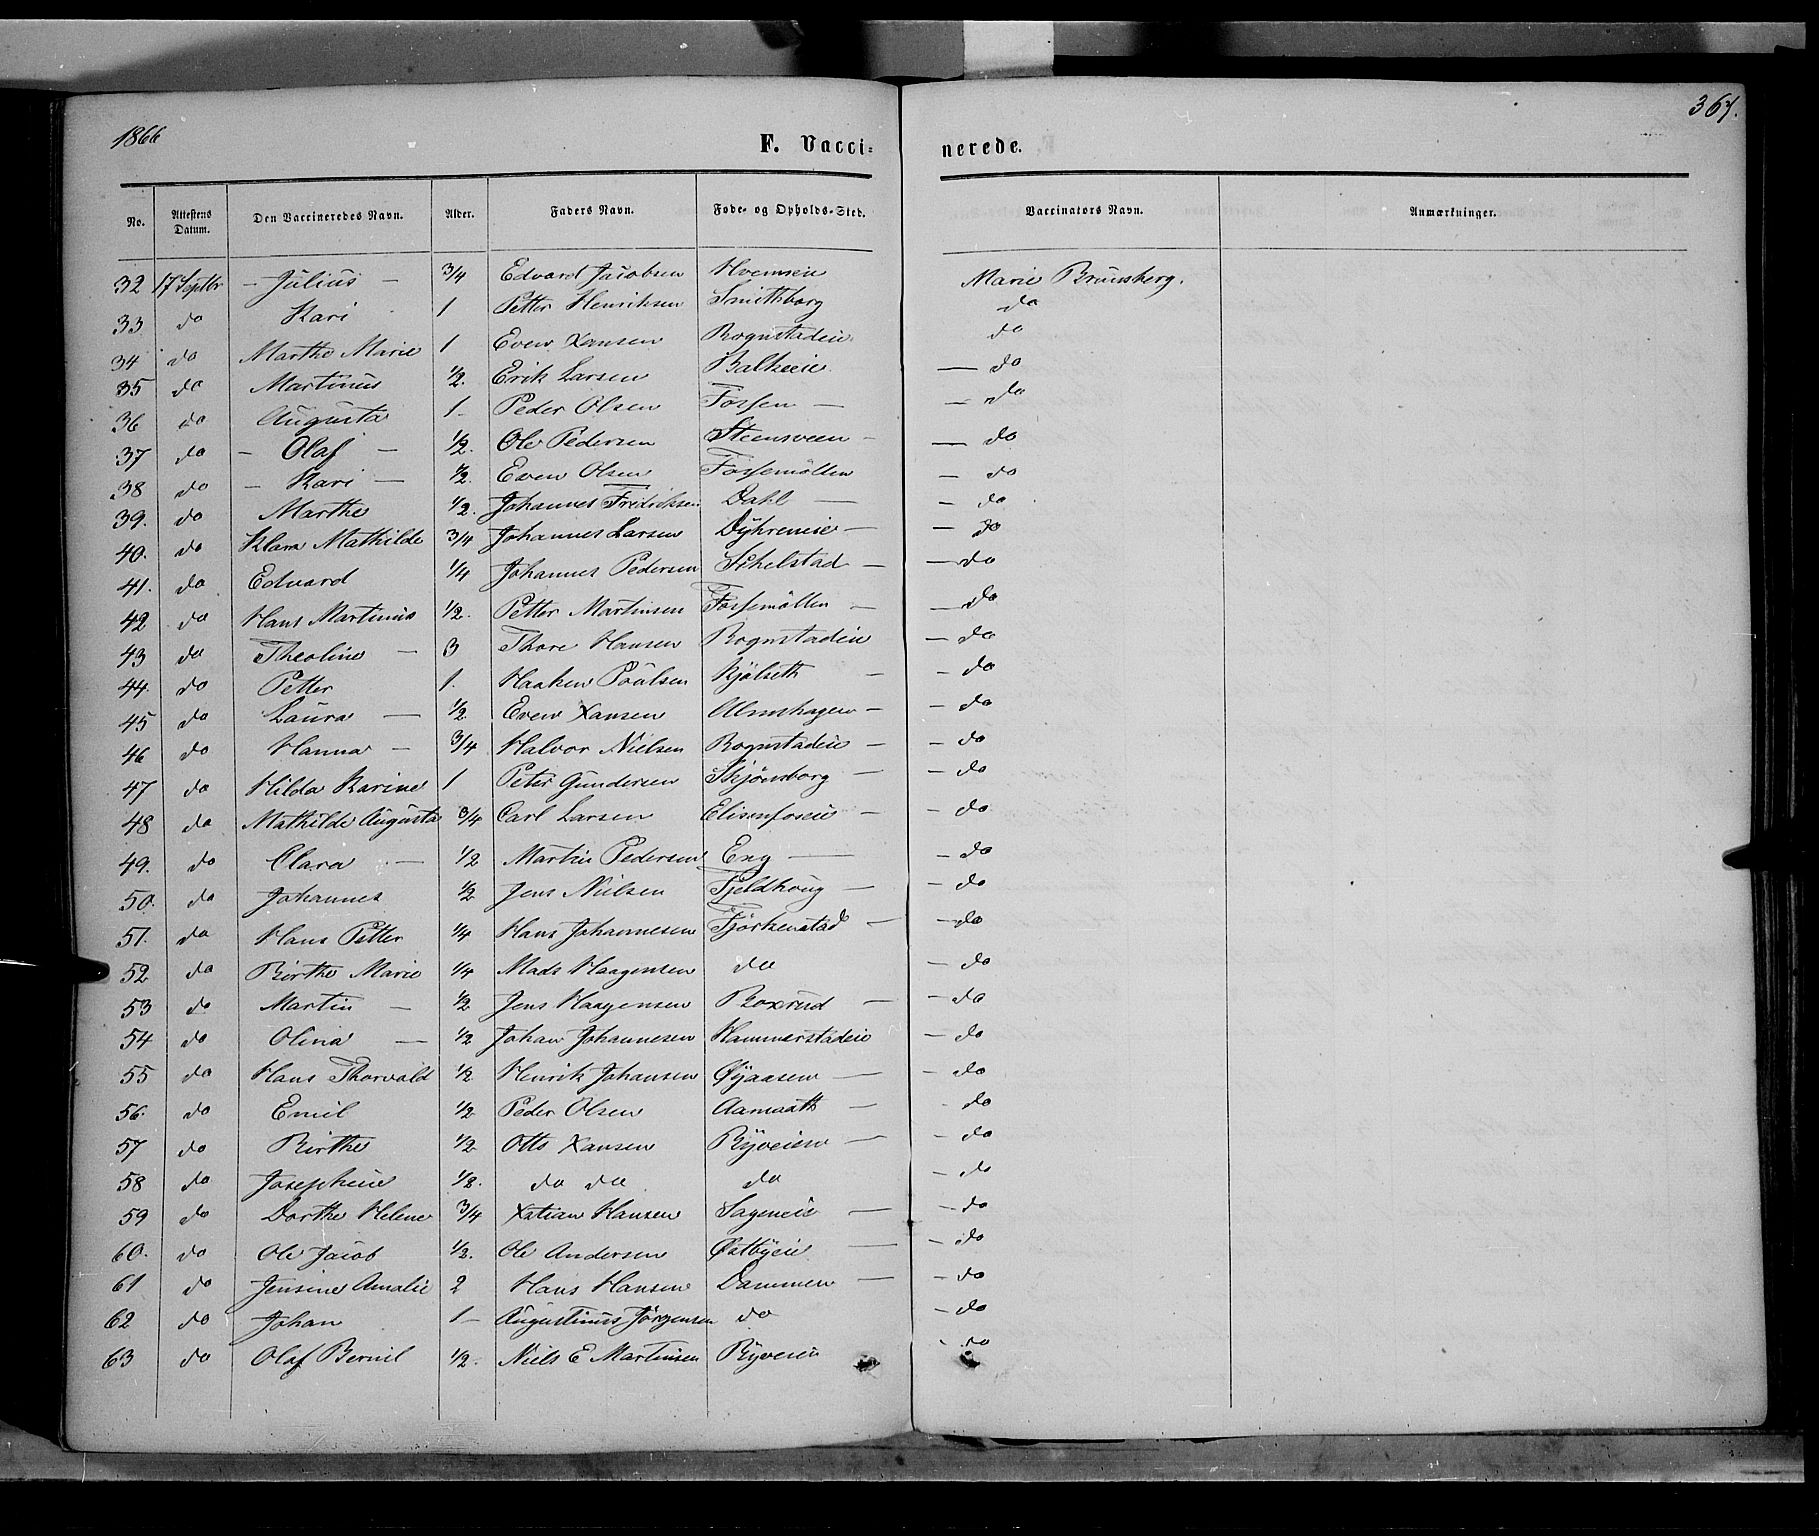 1866
367.
F. Vaccinerede.
No. Attestens Datum. Den Vaccineredes Navn. Alder. Faders Navn. Føde- og Opholds-Sted. Vaccinators Navn. Anmærkninger.
32 17 Septbr - Julius - 3/4 Edvard Jacobsen Hvemeie Marie Bruusberg.
33 do Kari 1 Petter Henriksen Smithsborg do
34 do Marthe Marie 1 Even Hansen Rognstadeie do
35 do Martinus 1/2. Erik Larsen Balkeeie — do
36 do Augusta 1- Peder Olsen Fossen — — do
37 do - Olaf - 1/2. Ole Pedersen Steensveen - — do
38 do - Kari - 1/2. Even Olsen Fossemöllen — do
39. do Marthe 1/2. Johannes Fredriksen Dahl — — do
40. do Klara Mathilde 3/4 Johannes Larsen Dyhreneie — — do
41. do Edvard 1/4 Johannes Pedersen Sehelstad — — do
42 do Hans Martinus 1/2. Petter Martinsen Fossemöllen — — do
43 do Theoline — 3 Thore Hansen Rognstadeie — do
44. do Petter 1. Haaken Poulsen Kjölseth — — do
45 do Laura — 1/2 Even Hansen Almshagen — — do
46 do Hanna — 3/4 Halvor Nielsen Rognstadeie — — do
47 do Hilda Karine 1 Peter Gundersen Skjönsborg — — do
48 do Mathilde Augusta 3/4 Carl Larsen Elisenfoseie — — do
49. do Clara — 1/2 Martin Pedersen Eng — — do
50. do Johannes 1/2 Jens Nielsen Fjeldhoug — — do
51. do Hans Petter 1/4 Hans Johannesen Fjörkenstad — — do
52 do Birthe Marie 1/4 Mads Haagensen do — do
53 do Martin — 1/2 Jens Haagensen Boxrud — — do
54 do Olina — 1/2 Johan Johannesen Hammerstadeie — do
55 do Hans Thorvald 1/2 Henrik Johansen Øyaasen — — do
56. do Emil 1/2 Peder Olsen Aamaath — do
57 do Birthe 1/2 Otto Hansen Ryveien — — do
58 do Josephine 1/2. do do do — do
59 do Dorthe Helene 3/4 Xstian Hansen Sageneie — — do
60. do Ole Jacob 1/2. Ole Andersen Østbyeie — — do
61 do Jensine Amalie 2 Hans Hansen Dammen — — do
62 do Johan 1- Augustinus Jörgensen do — do
63 do Olaf Bernil 1/2. Niels E Martinsen Ryveien - do